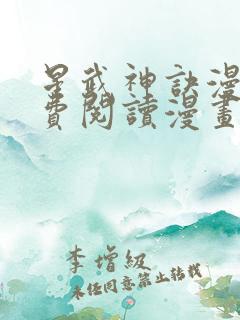 星武神訣漫
費閱讀漫畫
李增級
未经同意禁止转载